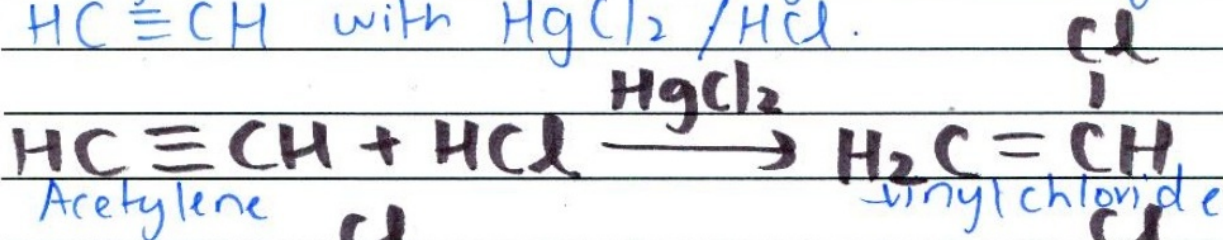 HC ≡ CH with HgCl2 / HCl.
Cl
HgCl2
HC ≡ CH + HCl → H2C = CH
Acetylene vinyl chloride
Cl Cl